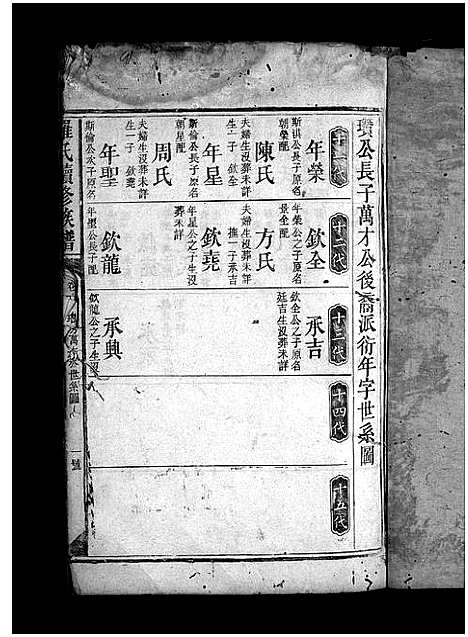 瓊公長子萬才公後裔派衍年字世系圖
十一代
年榮
斯洪公長子原名
朝榮配
陳氏
夫婦生沒葬未詳
生一子 欽全
年星
斯倫公長子原名
朝星配
周氏
夫婦生沒葬未詳
生一子 欽堯
年聖
斯倫公次子原名
十二代
欽全
年榮公之子原名
景全配
方氏
夫婦生沒葬未詳
撫一子承吉
欽堯
年星公之子生沒
葬未詳
欽龍
年聖公長子配
十三代
承吉
欽全公之子原名
廷吉生沒葬未詳
承興
欽龍公之子生沒
十四代
十五代
羅氏續修族譜
萬才公世系圖
一號